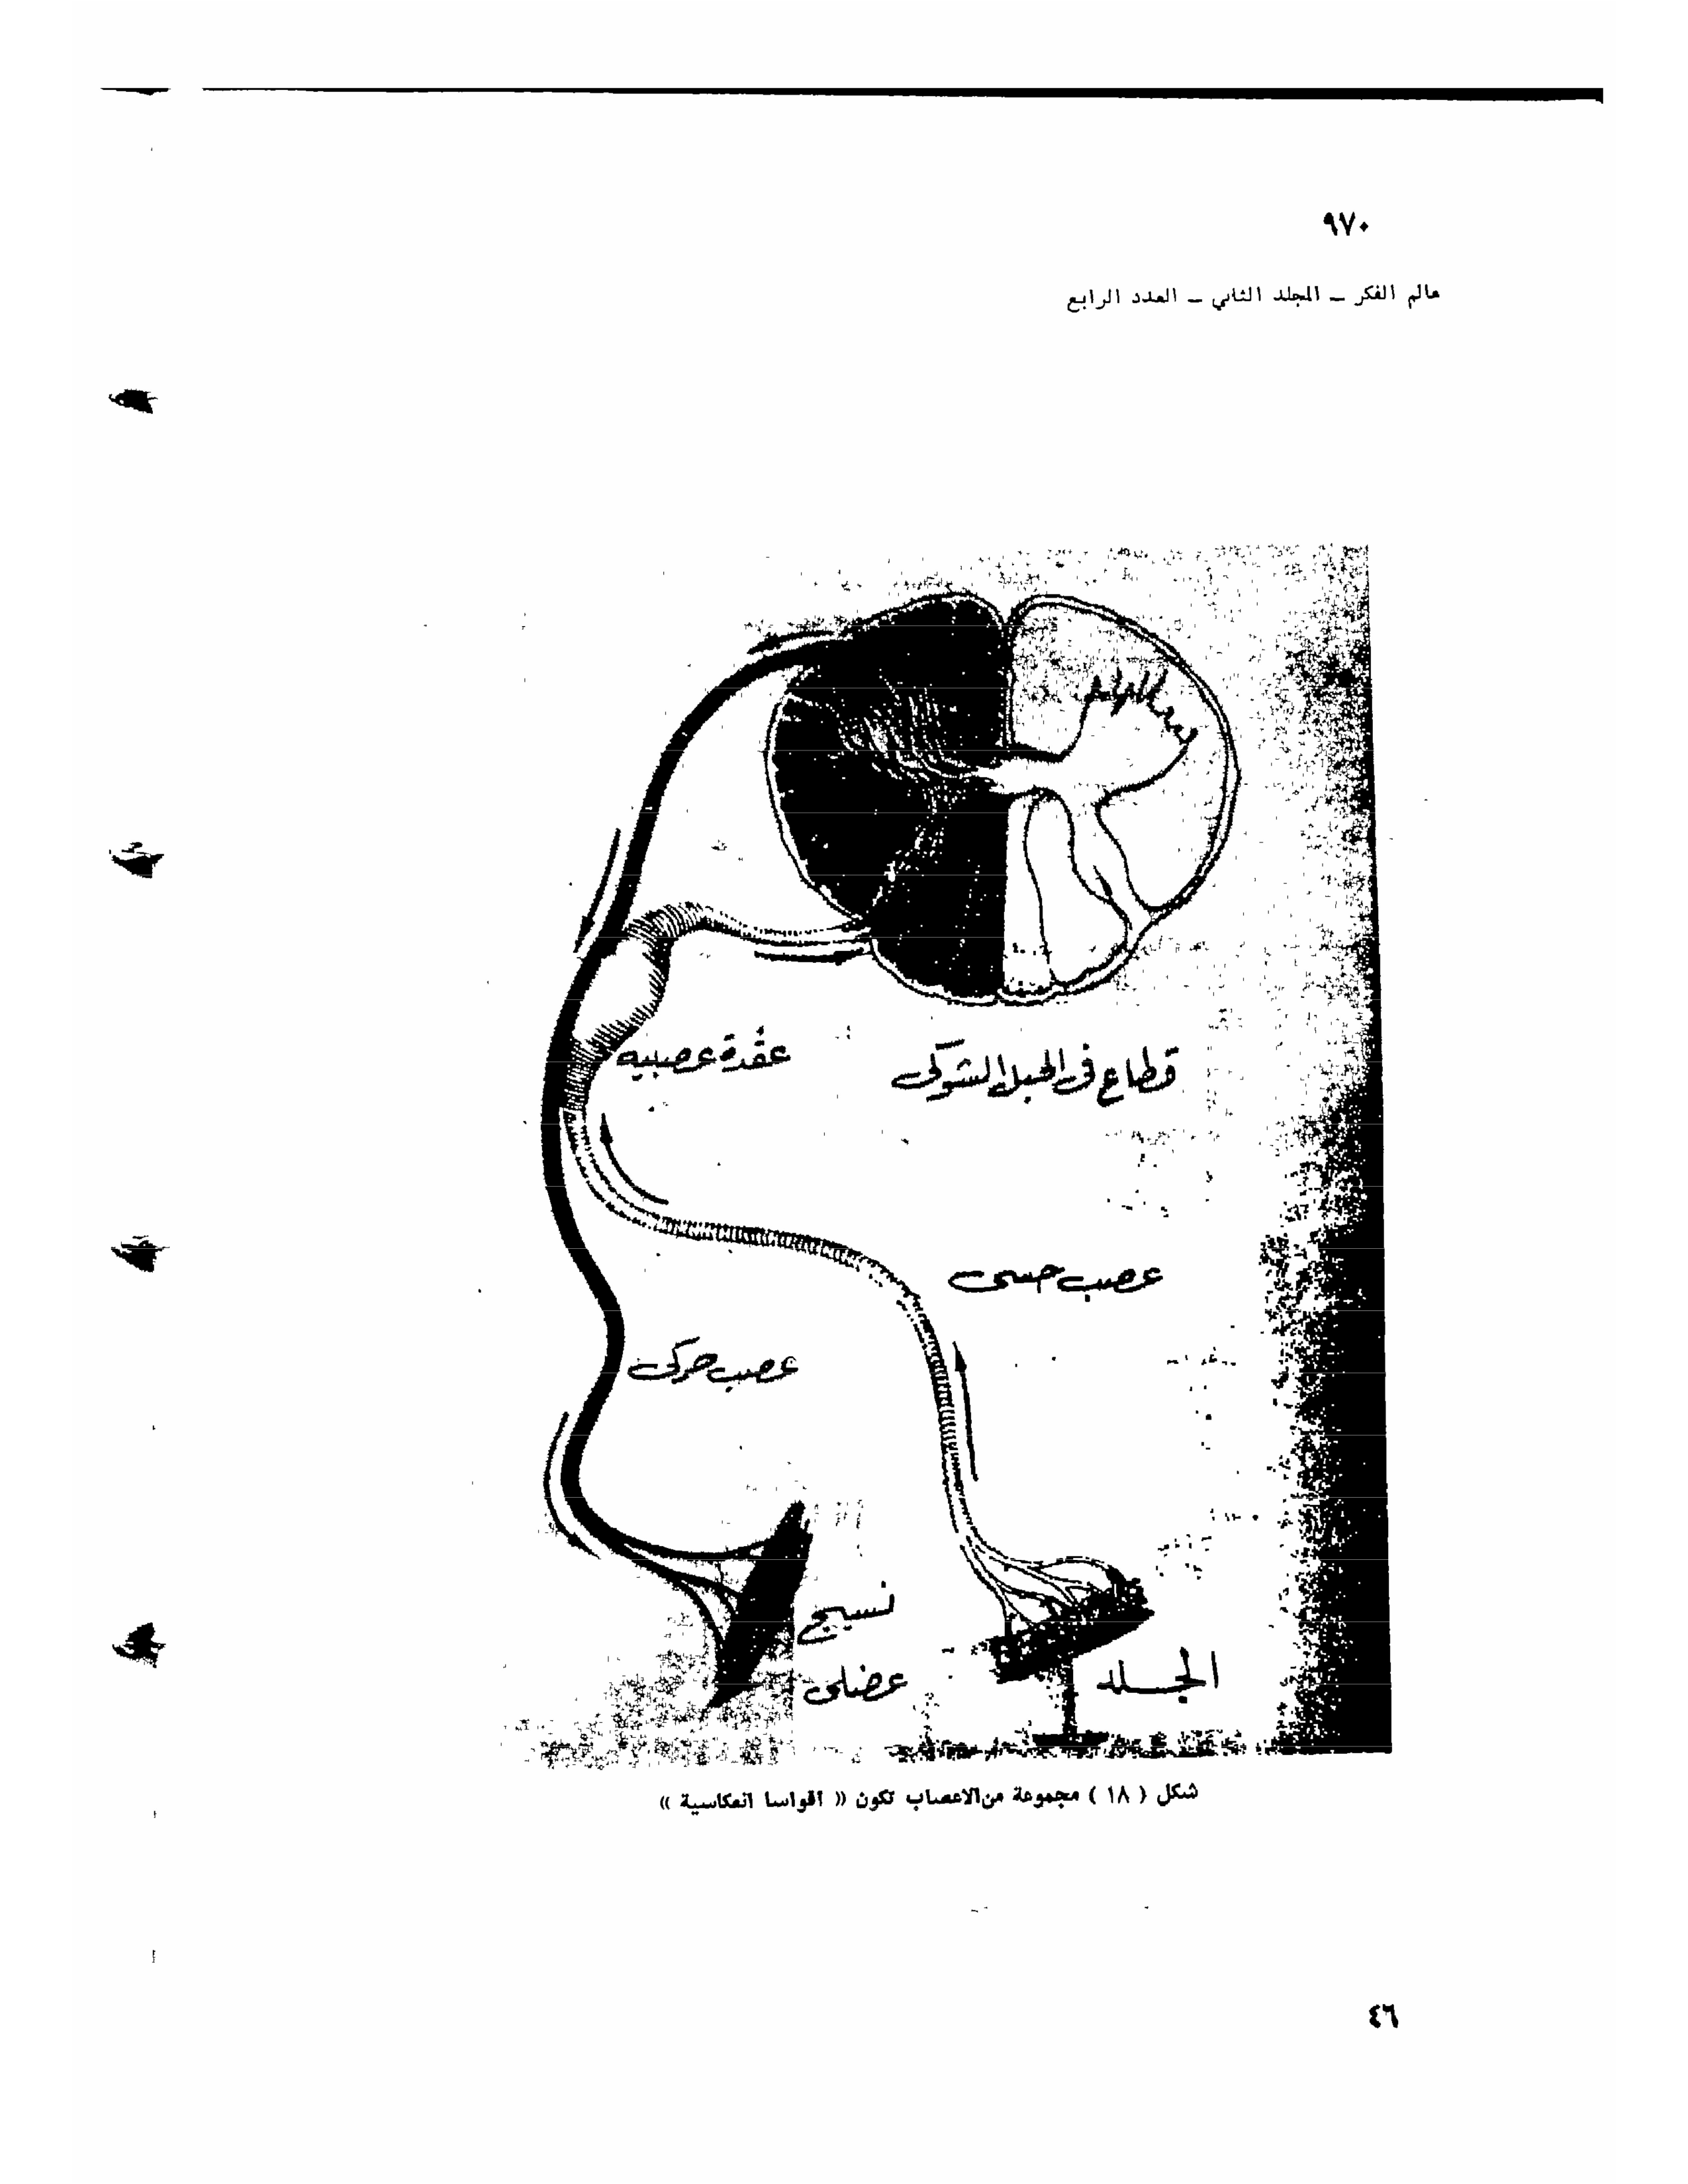 ٩٧٠
عالم الفكر ــ المجلد الثاني ــ العدد الرابع
عقدة عصبيه
قطاع فى الحبل الشوكى
عصب حسى
عصب حركى
نسيج
عضلى
الجلد
شكل ( ١٨ ) مجموعة من الاعصاب تكون « أقواسا انعكاسية »
٤٦